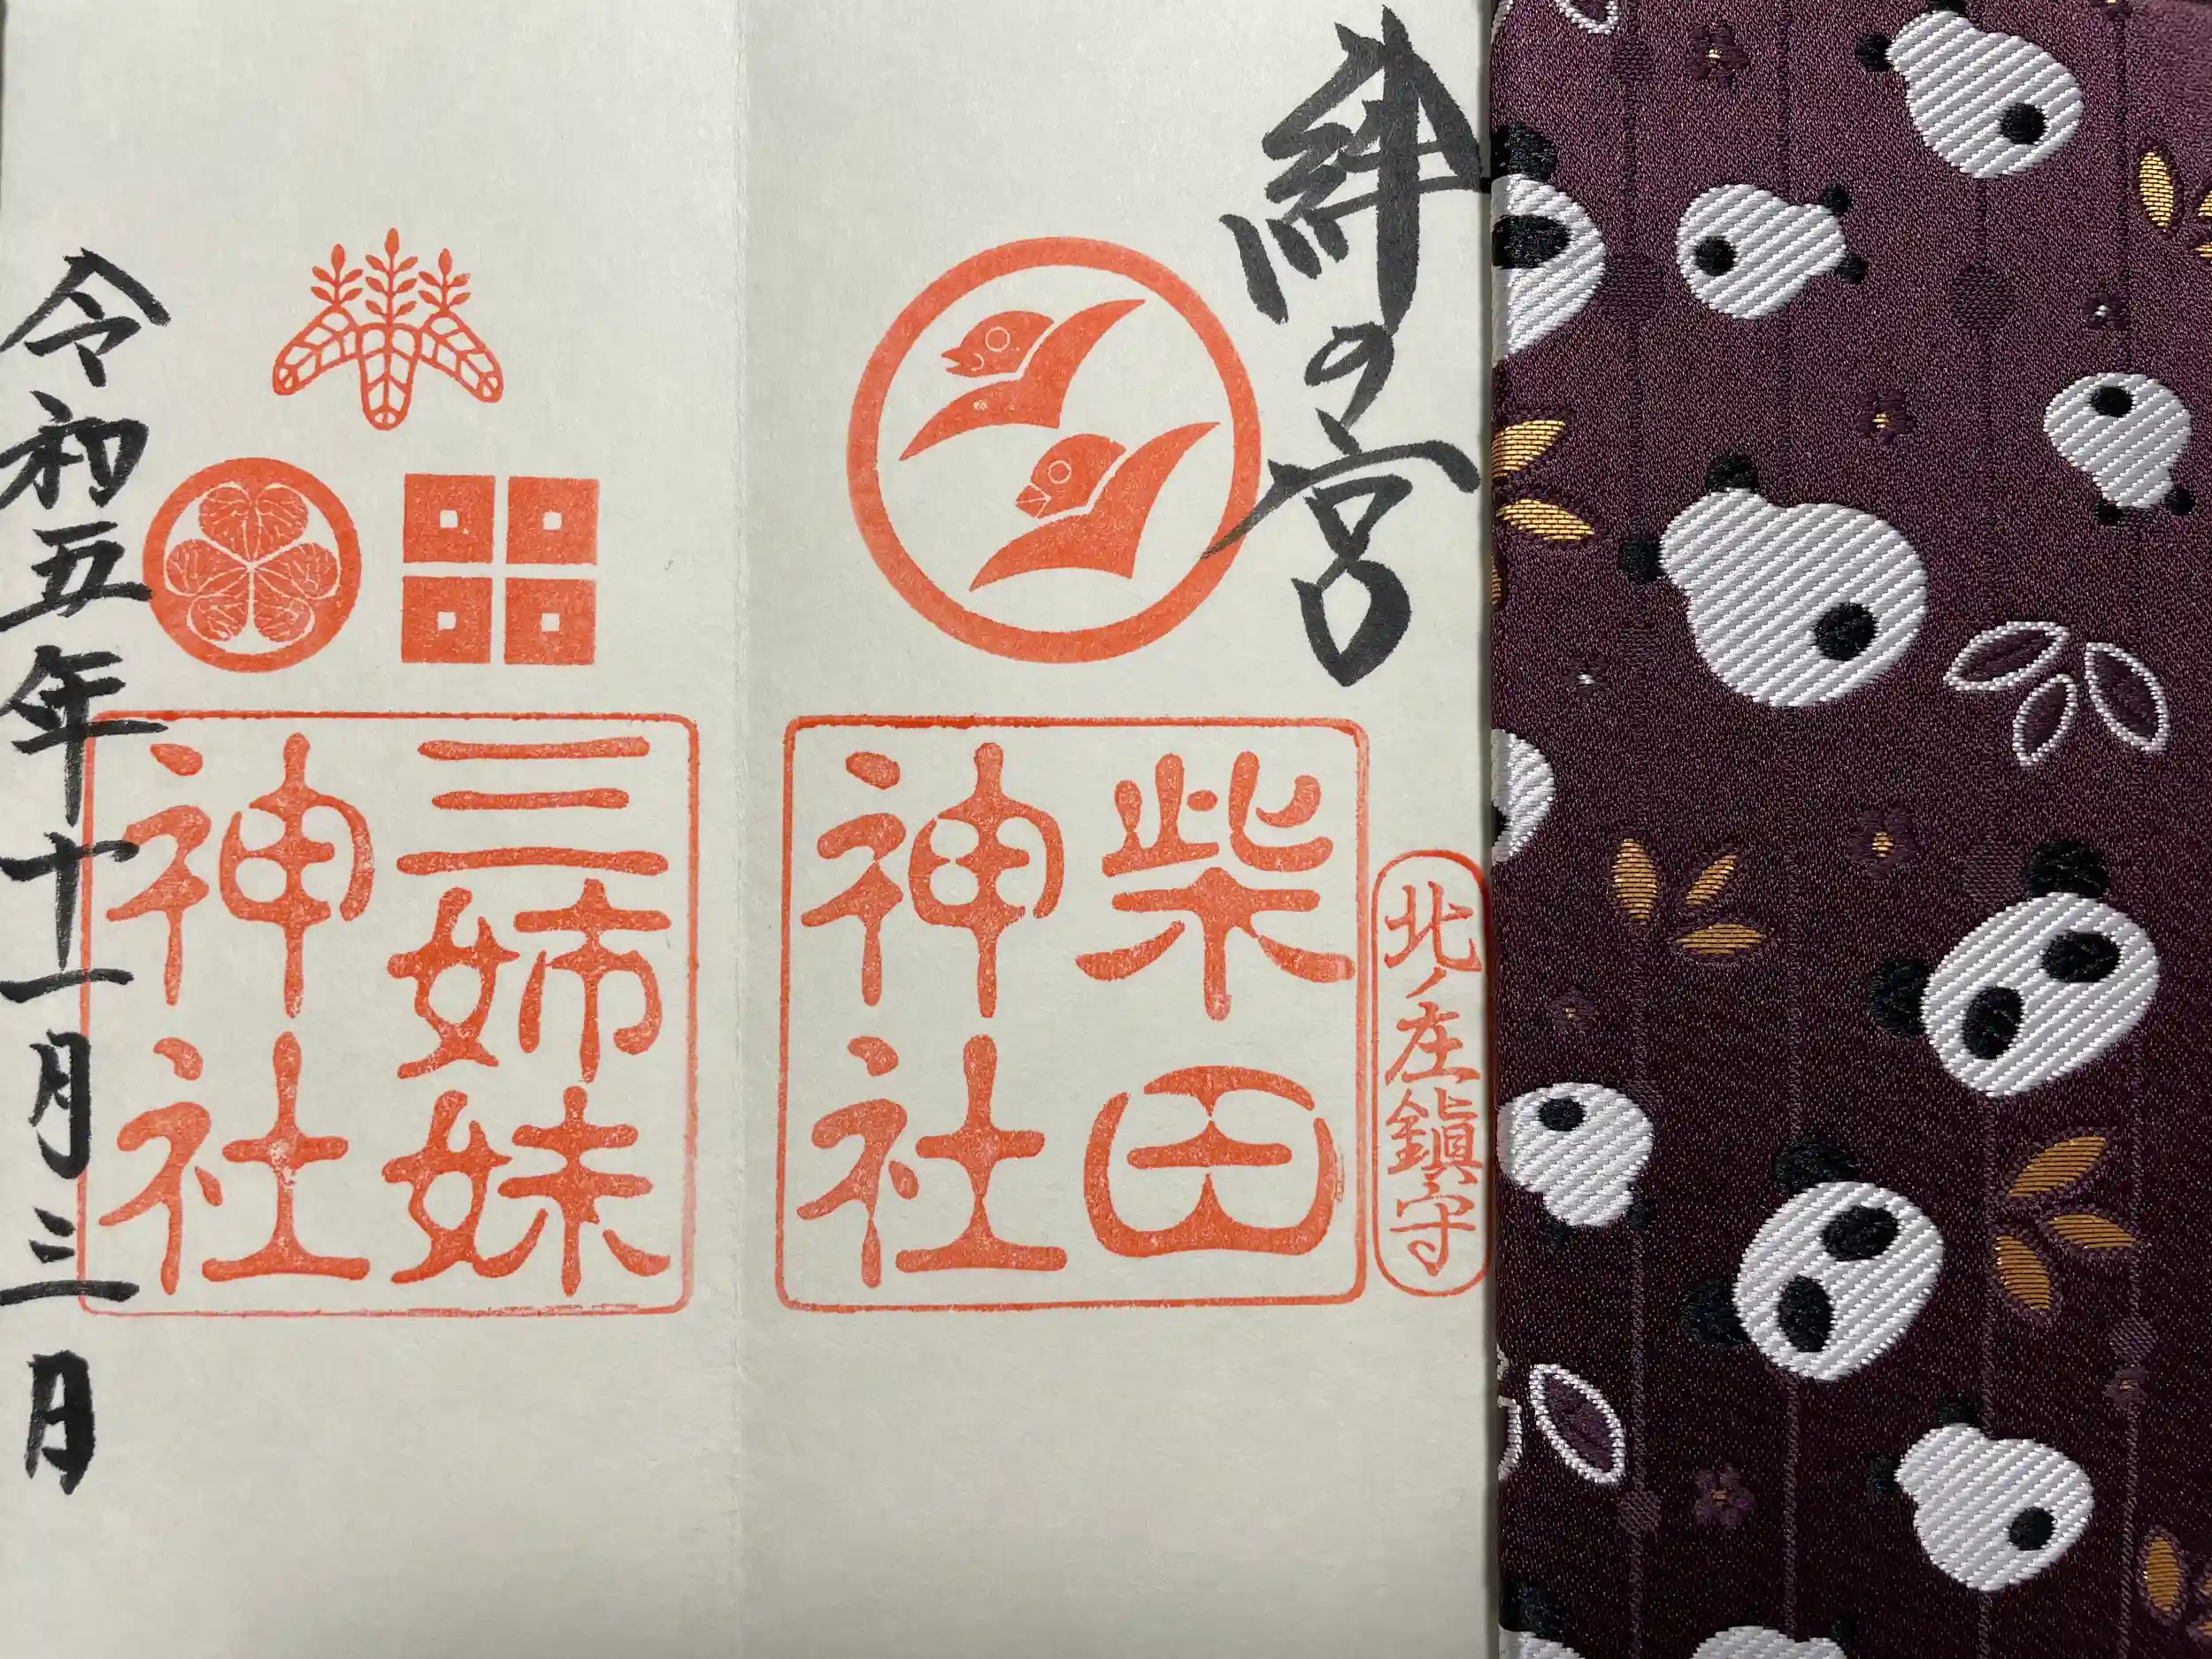 絆の宮
北ノ庄鎮守
柴田
神社
三姉妹
神社
令和五年十一月三日